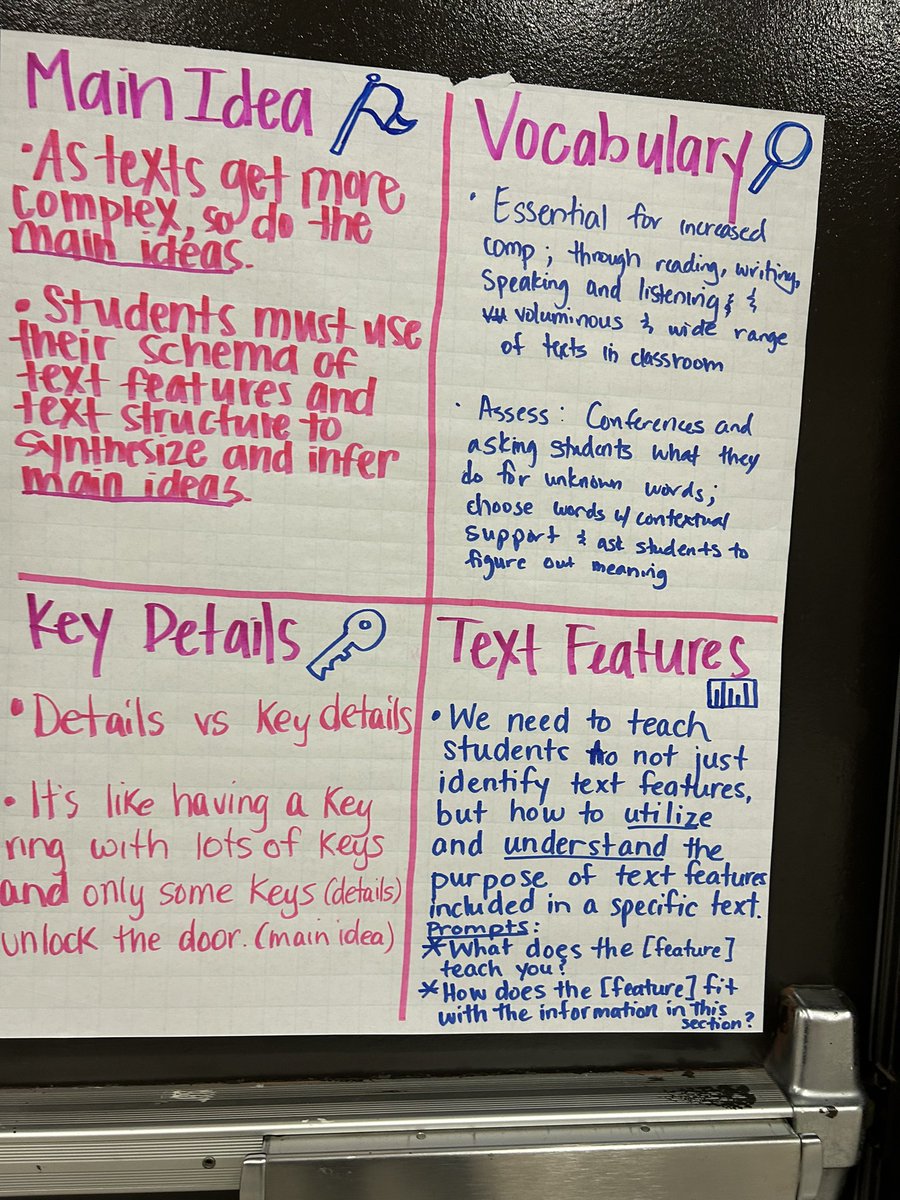 Main Idea
• As texts get more
complex, so do the
main ideas.
• Students must use
their schema of
text features and
text structure to
synthesize and infer
main ideas.
Vocabulary
• Essential for increased
comp ; through reading, writing,
speaking and listening; &
voluminous & wide range
of texts in classroom
• Assess: Conferences and
asking students what they
do for unknown words;
choose words w/ contextual
support & ask students to
figure out meaning
Key Details
• Details vs Key details
• It's like having a key
ring with lots of keys
and only some keys (details)
unlock the door. (main idea)
Text Features
• We need to teach
students to not just
identify text features,
but how to utilize
and understand the
purpose of text features
included in a specific text.
Prompts:
* What does the [feature]
teach you?
* How does the [feature] fit
with the information in this
section?